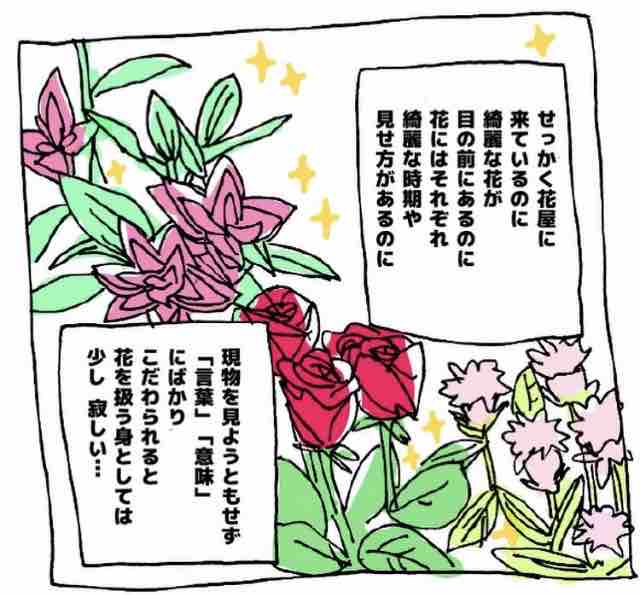 せっかく花屋に
来ているのに
綺麗な花が
目の前にあるのに
花にはそれぞれ
綺麗な時期や
見せ方があるのに
現物を見ようともせず
「言葉」「意味」
にばかり
こだわられると
花を扱う身としては
少し 寂しい…